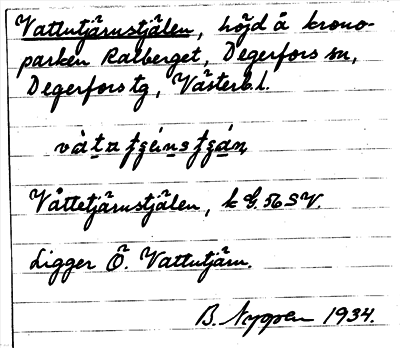 Vattutjärnstjälen, höjd å krono-
parken Ralberget, Degerfors sn,
Degerfors tg, Västerb. l.
Våttetjärnstjälen, k G. 56 SV.
Ligger Ö. Vattutjärn.
B. Nygren 1934.